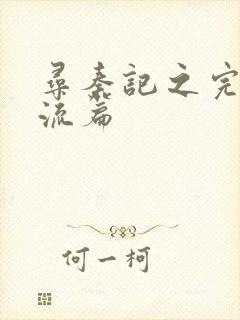 尋秦記之完
流篇
何一柯